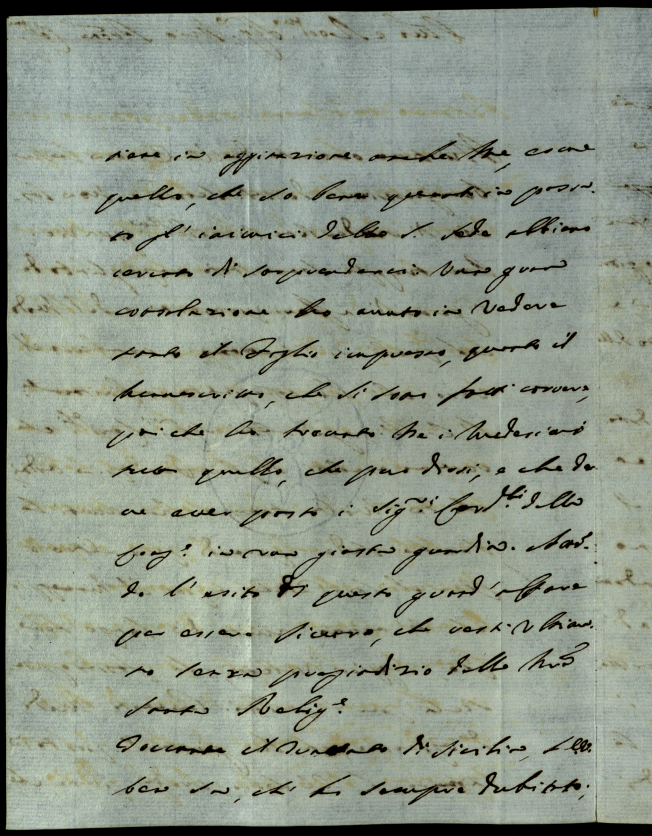 tiene in apprensione anche me, come
quello, che so bene quanti in passa-
to gl'inimici della S. Sede abbiano
cercato di sorprenderci. Una gran
consolazione ho avuto in vedere
tanto il foglio impresso, quanto il
manoscritto, che si sono fatti correre,
poiche ho trovato tra i medesimi
tutto quello, che può dirsi, e che de-
ve aver posto i Sig.ri Card.li della
Cong.e in una giusta guardia.
do l'esito di questo grand'affare
per essere sicuro, che resti ultima-
to senza pregiudizio della n̄ra
Santa Relig.e
Toccante il di Sicilia, 
ben sa, ch'ho sempre dubitato;